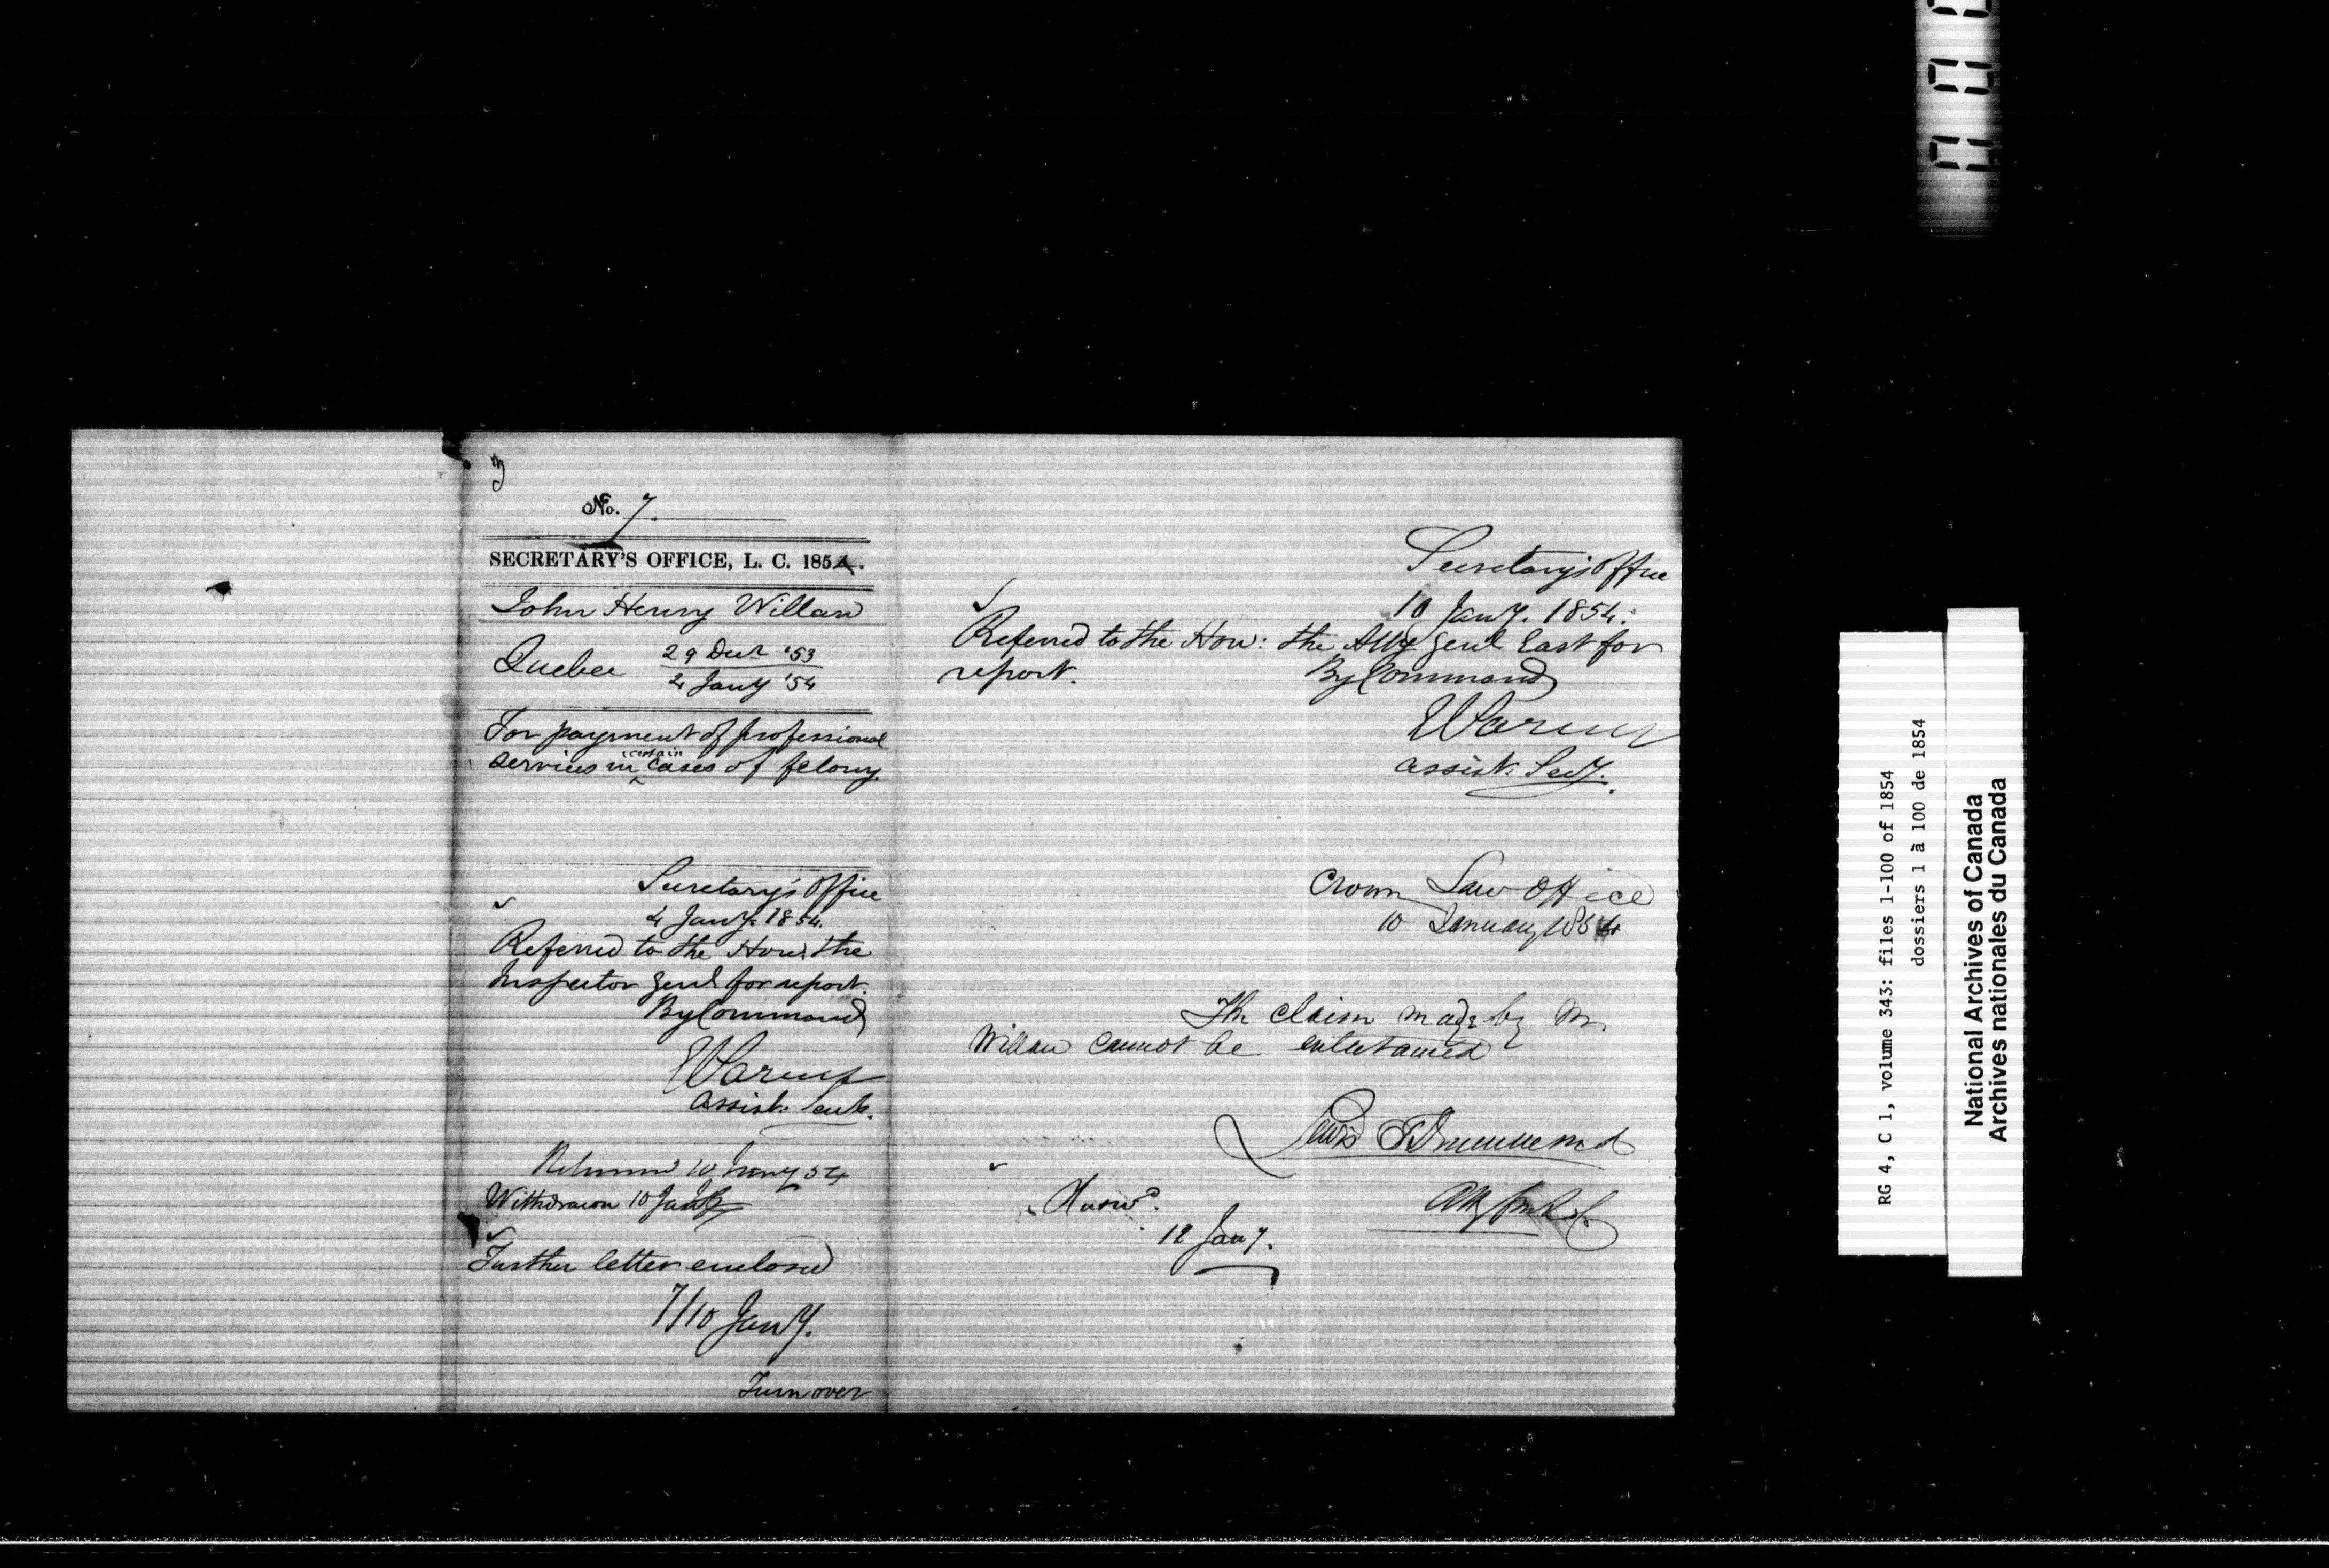 3
No. 7.
SECRETARY'S OFFICE, L. C. 1854.
John Henry Willan
Quebec 29 Decr '53
4 Jany '54
For payment of professional
services in certain cases of felony.
Secretary's Office
4 Jany. 1854.
Referred to the Hon: the
Inspector Genl for report.
By Command
Assist: Secy.
Returned 10 Jany 54
Withdrawn 10 Jany
Further letter enclosed
7/10 Jany.
Turn over
Secretary's Office
10 Jany. 1854:
Referred to the Hon: the Atty Genl East for
report. By Command
Assist: Secy.
Crown Law Office
10 January 1854
The claim made by Mr
Willan cannot be entertained
Lewis T Drummond
Answd.
12 Jany.
RG 4, C 1, volume 343: files 1-100 of 1854
dossiers 1 à 100 de 1854
National Archives of Canada
Archives nationales du Canada